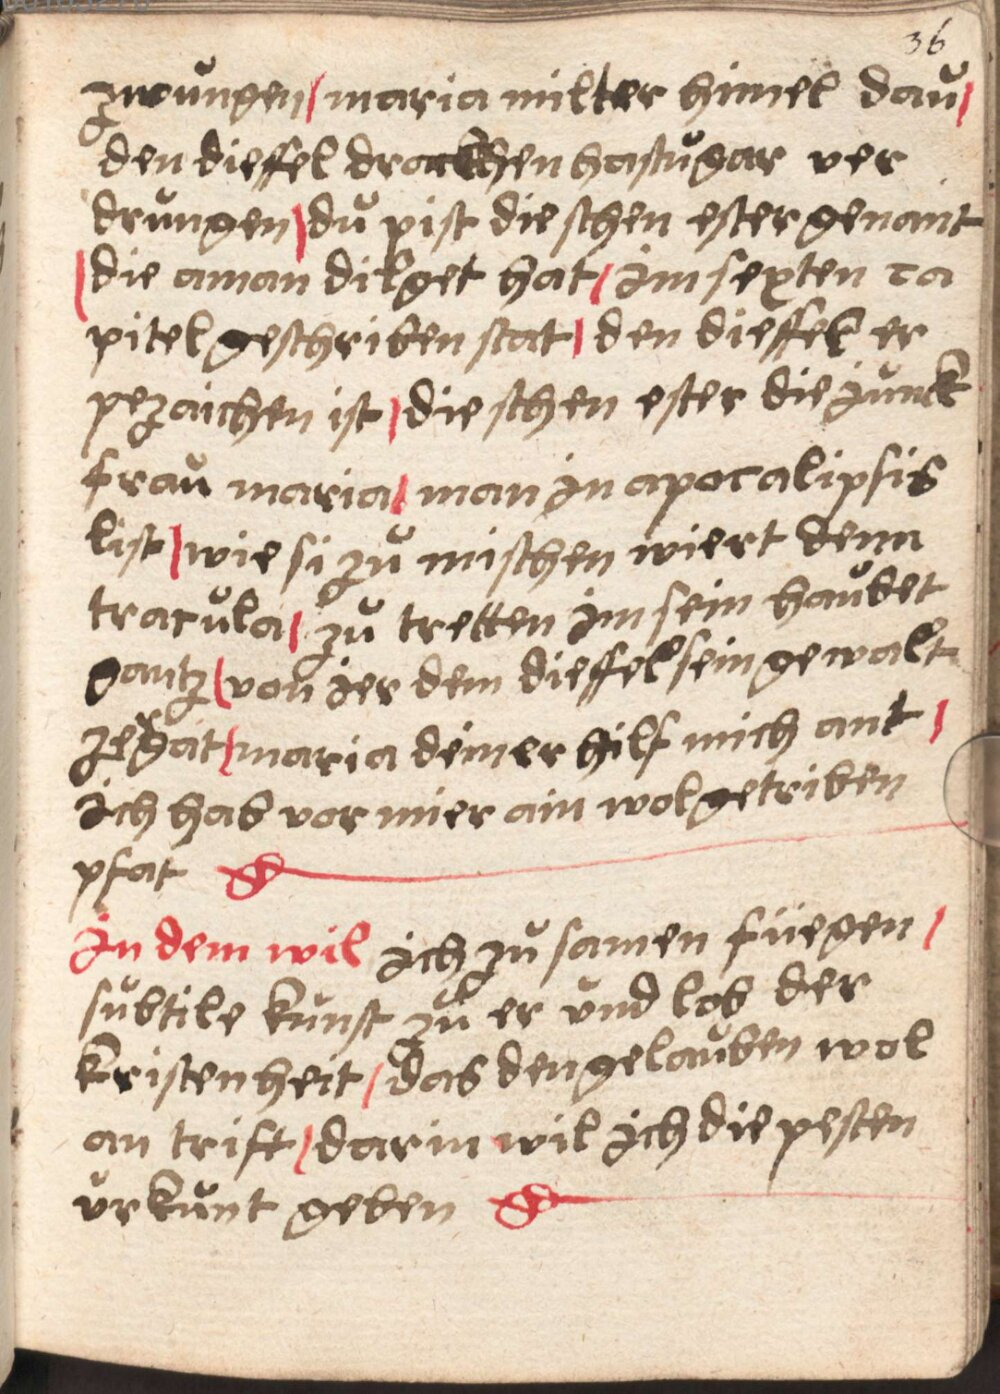 36
zwungen / maria milter himel dau /
den dieffel dracken hastu gar ver
drungen / du pist die schen ester genant
/ die aman dilget hat / im sexten ca
pitel geschriben stat / den dieffel er
pezaichen ist / die schen ester die junck
frau maria / man in apocalipsis
list / wie si zu mischen wiert denn
tracula / zu tretten im sein haubet
gantz / von ier dem dieffel sein gewalt
zergat / maria deiner hilf mich ant /
ich hab vor mier ain wol getriben
pfat
In dem wil ich zu samen füegen /
subtile kunst zu er und lob der
kristenheit / das den gelauben wol
an trift / darin wil ich die pesten
urkunt geben